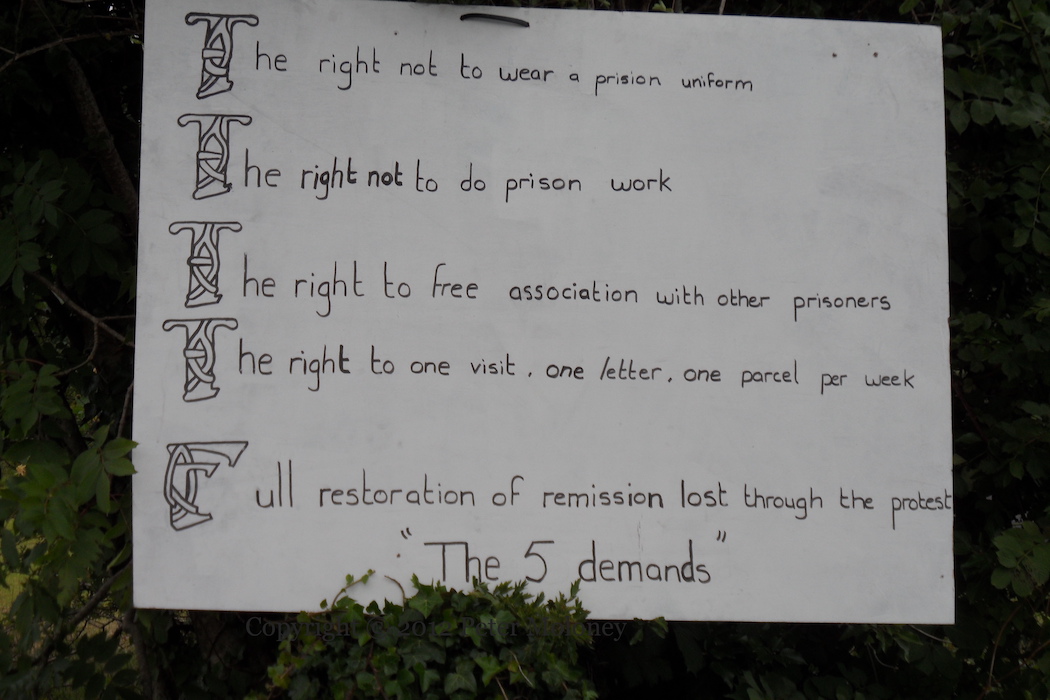 The right not to wear a prision uniform
The right not to do prison work
The right to free association with other prisoners
The right to one visit, one letter, one parcel per week
Full restoration of remission lost through the protest
"The 5 demands"
Copyright © 2012 Peter